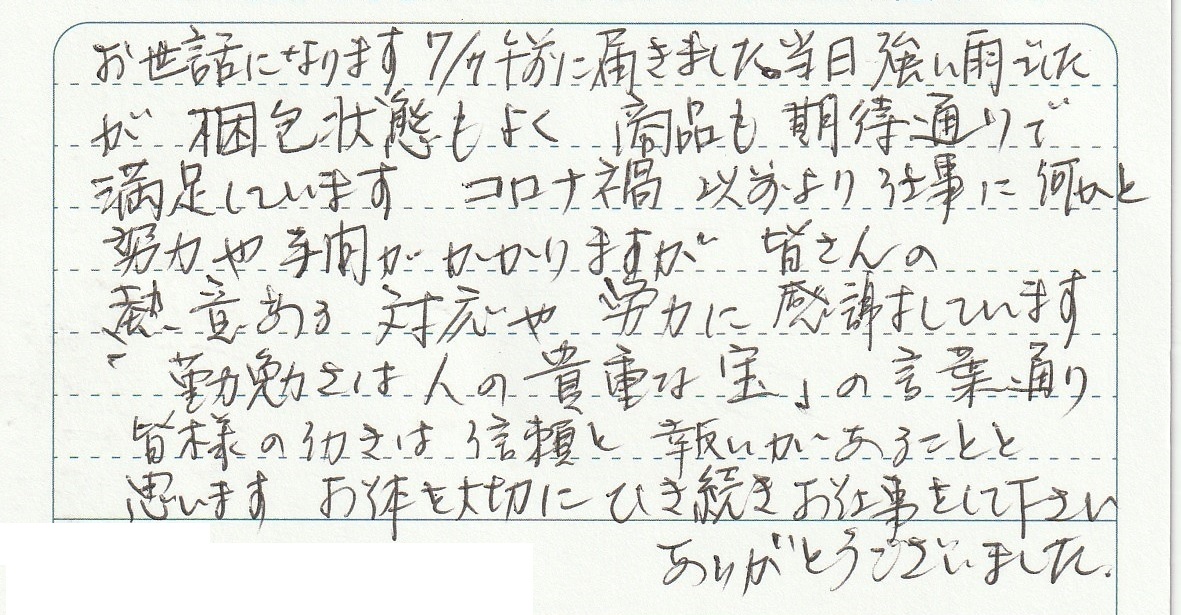 お世話になります 7/7午前に届きました。当日 強い雨でした
が 梱包状態もよく 商品も 期待通りで
満足しています コロナ禍 以前より 仕事に 何かと
努力や手間がかかりますが 皆さんの
熱意ある 対応や 労力に 感謝しています
「勤勉さは人の貴重な宝」の言葉通り
皆様の働きは 信頼と 報いがあることと
思います お体を大切に ひき続きお仕事をして下さい
ありがとうございました.